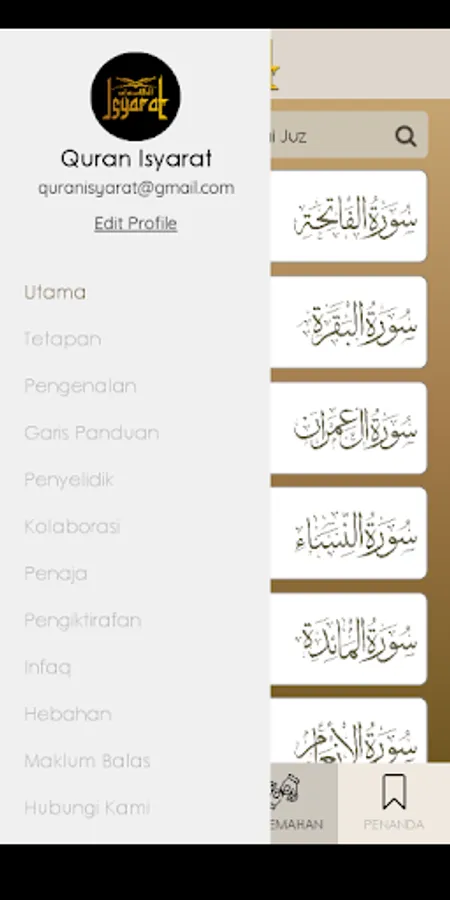 Isyarat
Quran Isyarat
quranisyarat@gmail.com
Edit Profile
Utama
Tetapan
Pengenalan
Garis Panduan
Penyelidik
Kolaborasi
Penaja
Pengiktirafan
Infaq
Hebahan
Maklum Balas
Hubungi Kami
Juz
سورة الفاتحة
سورة البقرة
سورة آل عمران
سورة النساء
سورة المائدة
سورة الأنعام
EMAHAN
PENANDA